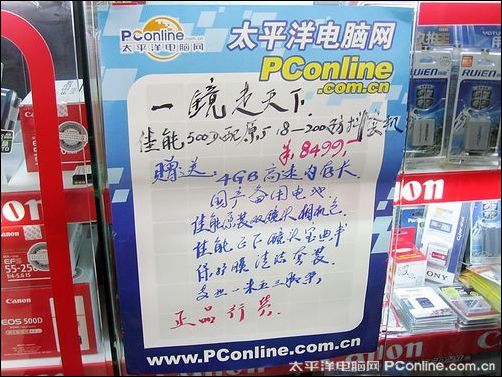 PConline.com.cn
太平洋电脑网
太平洋电脑网
PConline
.com.cn
一镜走天下
佳能500D配原厂18-200防抖套机
8499
赠送：4GB高速内存卡
国产备用电池
佳能原装双镜头相机包
佳能EOS镜头宝典书
保护膜清洁套装
支架一米五三脚架
正品行货
www.PConline.com.cn
Canon
EF-S
55-250
Canon
EOS 500D
RUIEN
RUIEN
Canon
SONY
太平洋电脑网 PConline.com.cn